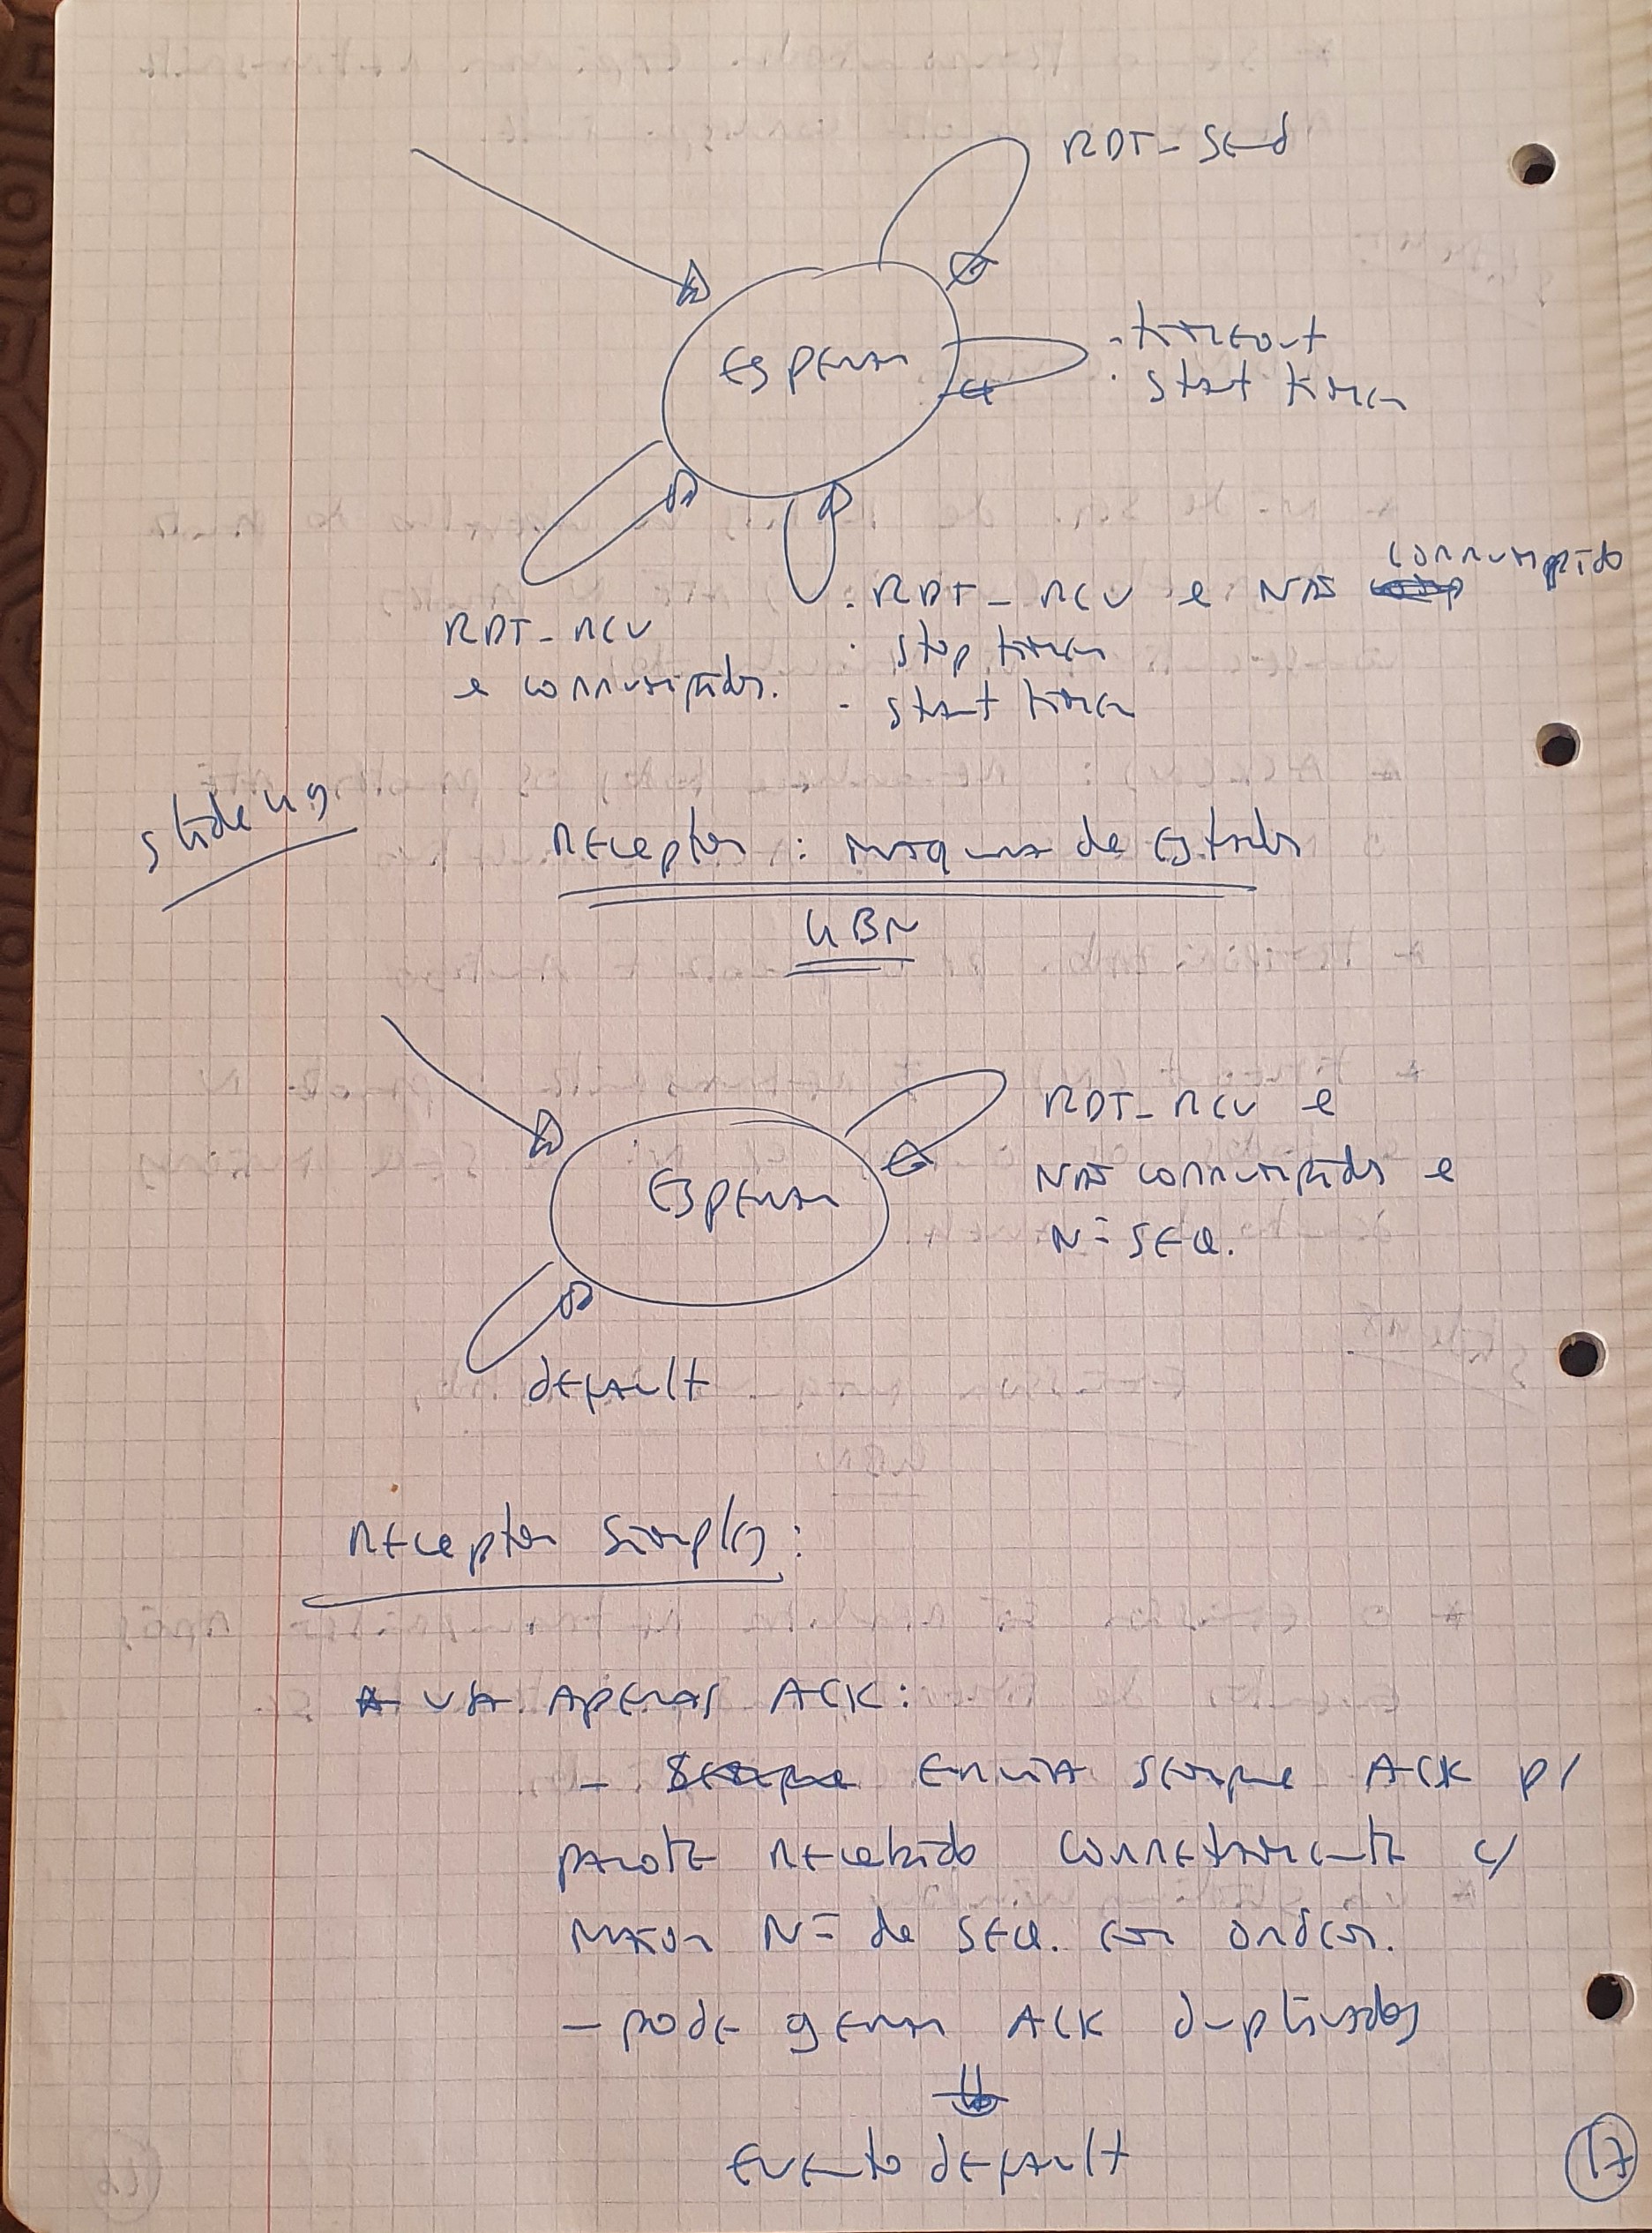 RDT_Send
Esperar
- timeout
. start timer
. RDT_RCV e não corrumpido
. stop timer
- start timer
RDT_RCV
e corrumpido.
slide 49
Receptor : maquina de Estados
GBN
Esperar
RDT_RCV e
não corrumpido e
Nº SEQ.
default
Receptor Simples:
* usa apenas ACK:
- Envia sempre ACK p/
pacote recebido corretamente c/
maior Nº de SEQ. em ordem.
- pode gerar ACK duplicados
⇓
Evento default
17